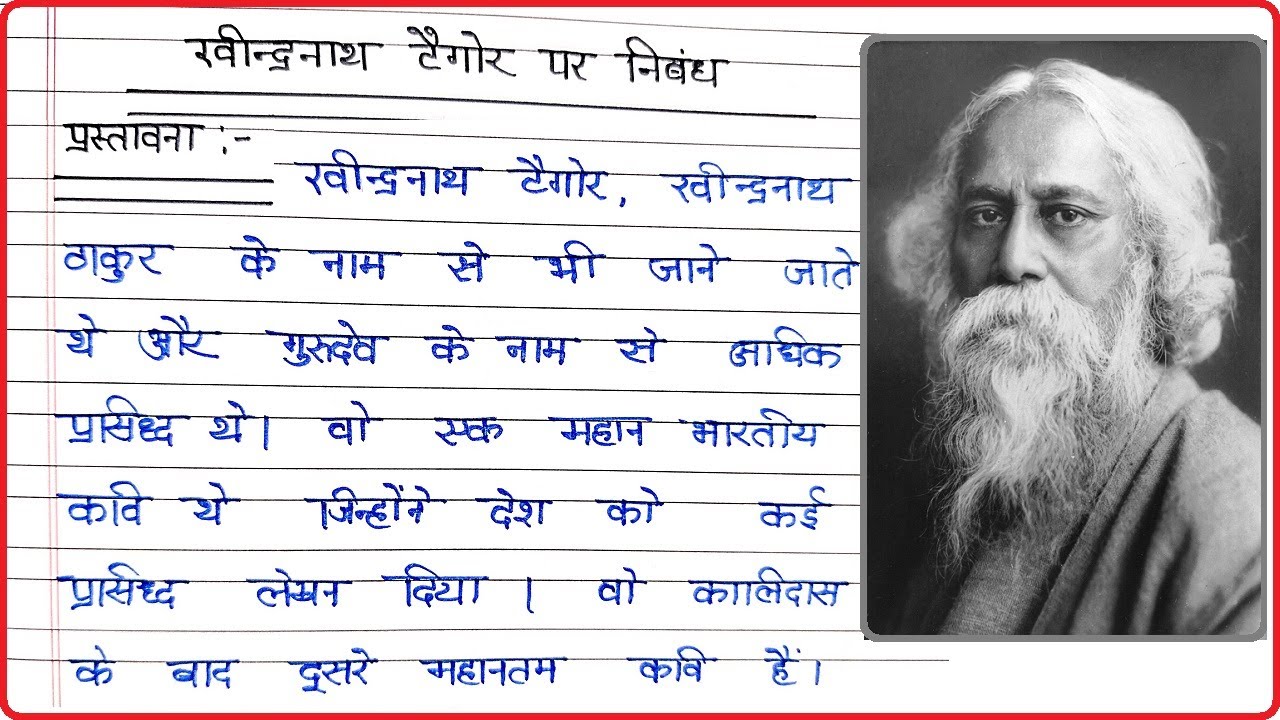 रवीन्द्रनाथ टैगोर पर निबंध
प्रस्तावना :-
रवीन्द्रनाथ टैगोर, रवीन्द्रनाथ
ठाकुर के नाम से भी जाने जाते
थे और गुरुदेव के नाम से अधिक
प्रसिध्द थे। वो एक महान भारतीय
कवि थे जिन्होंने देश को कई
प्रसिध्द लेखन दिया । वो कालिदास
के बाद दूसरे महानतम कवि हैं।